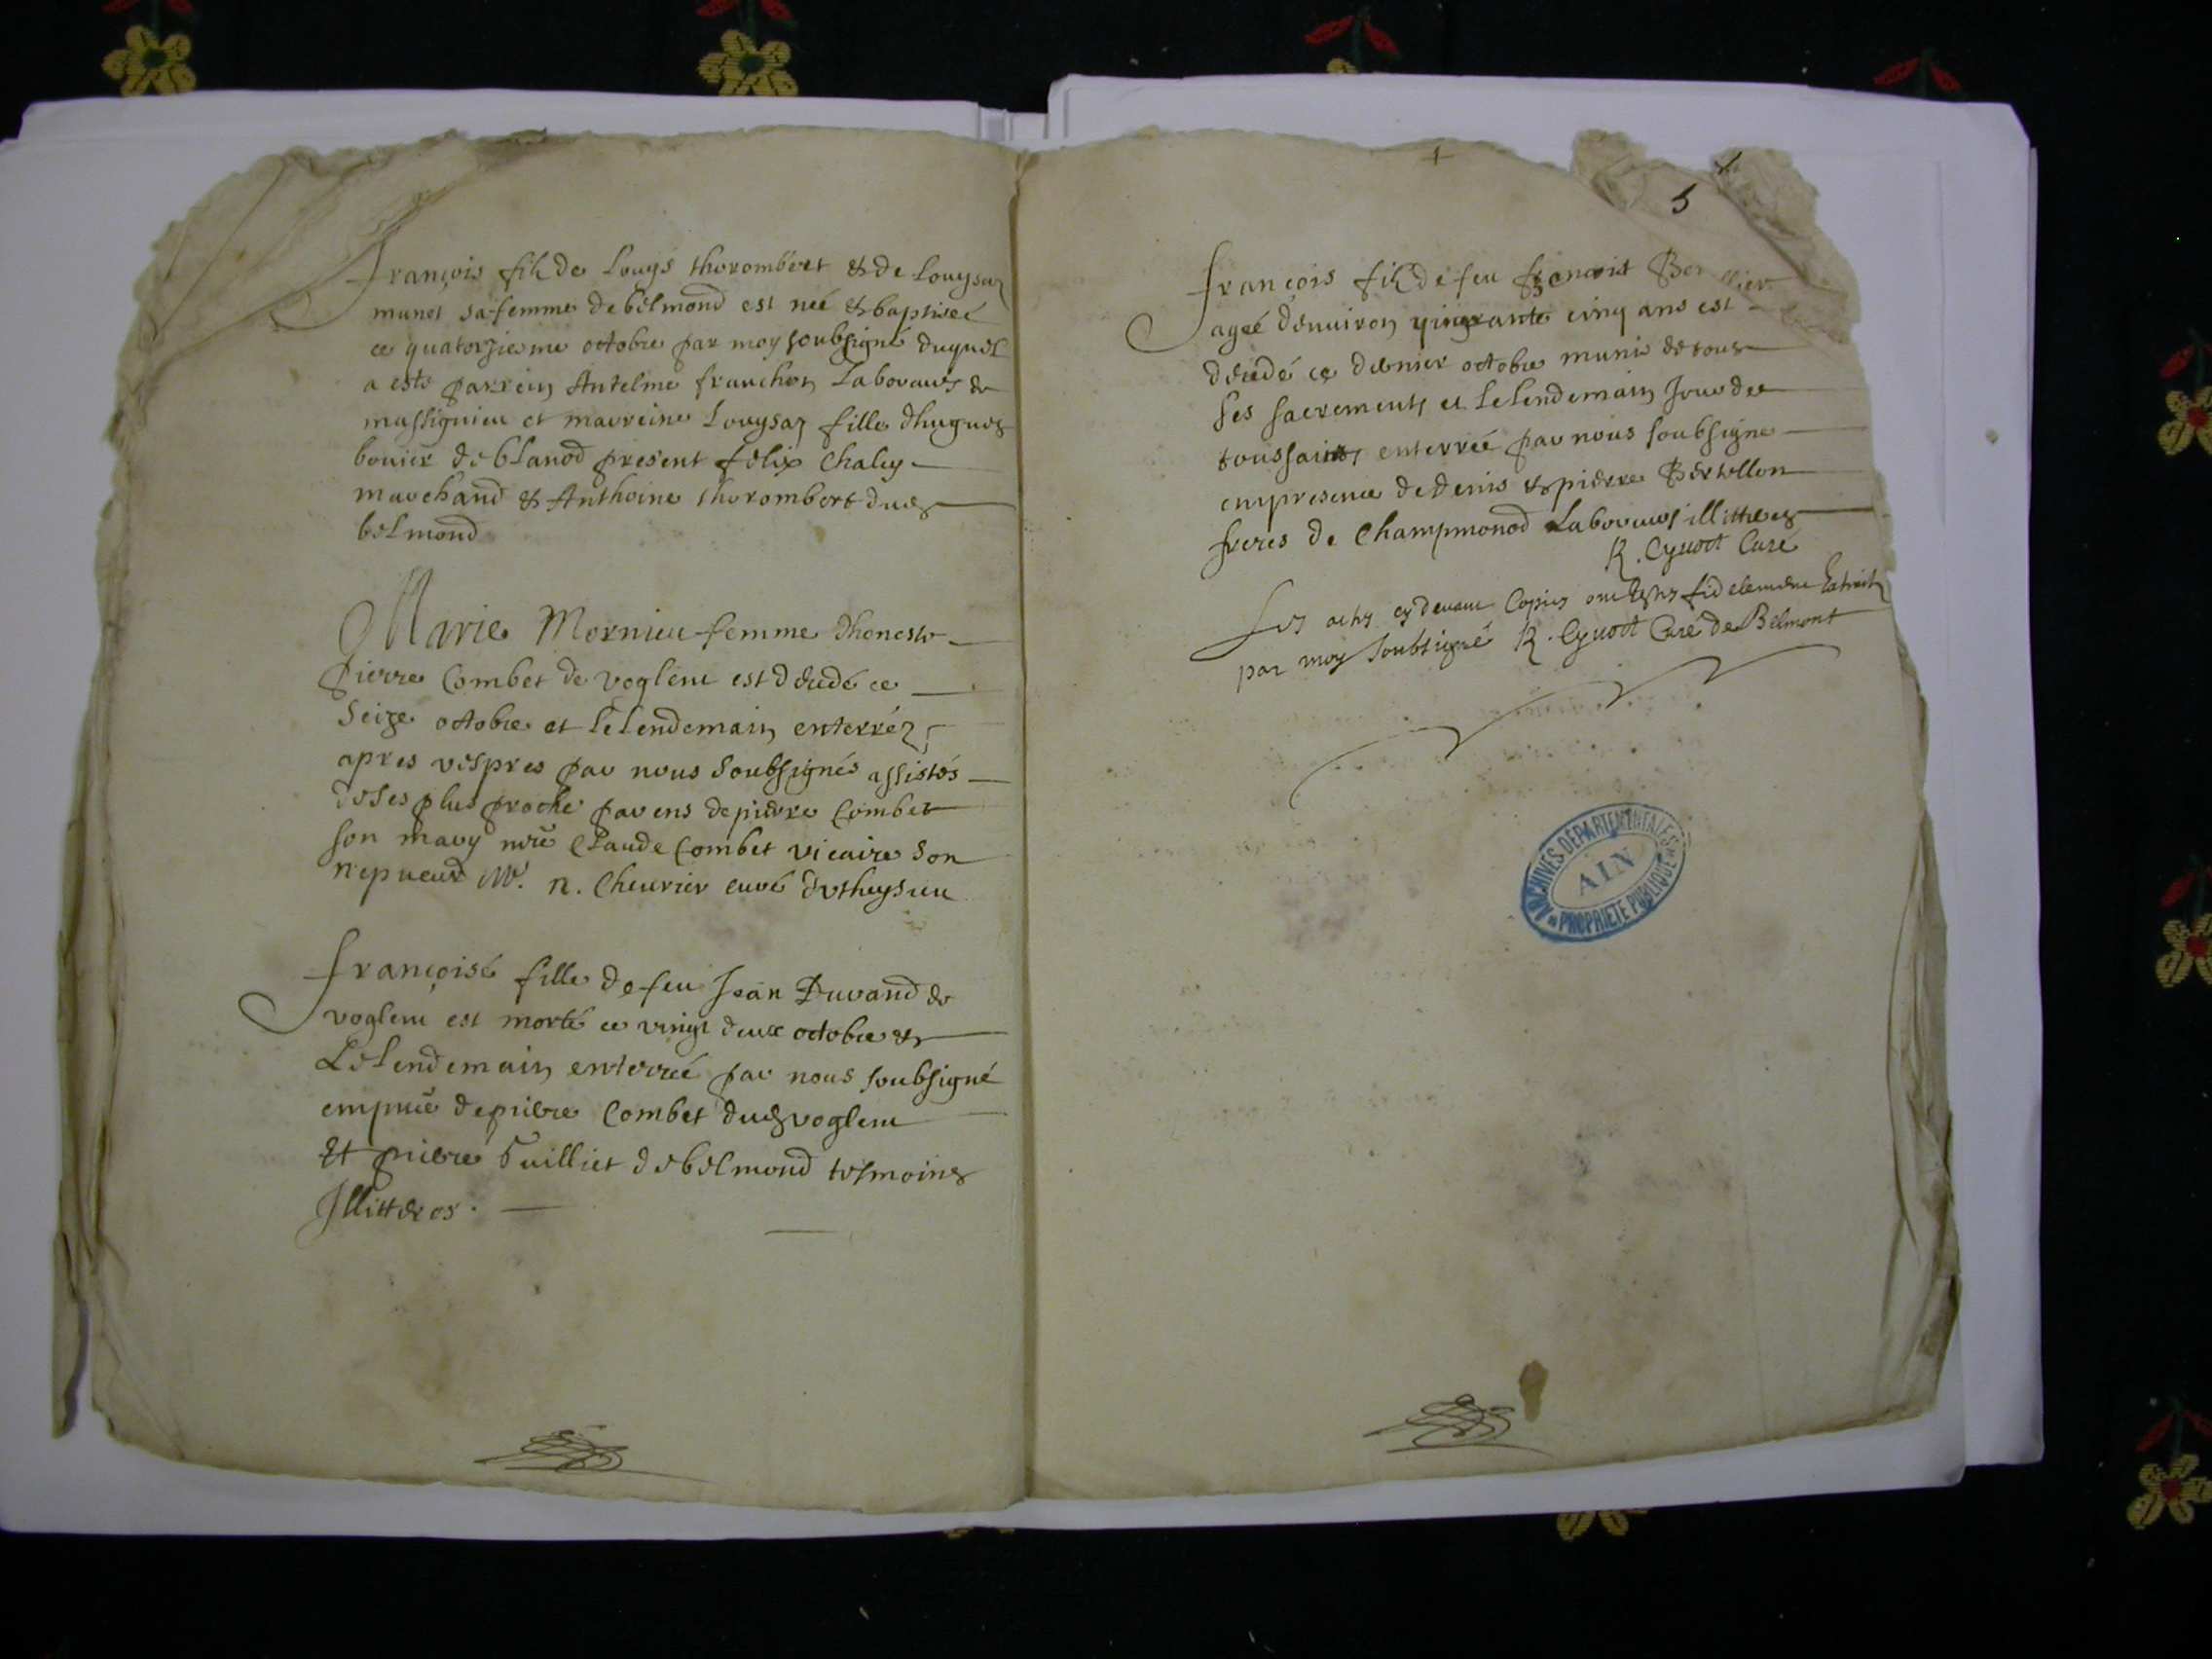 François filz de Louys thorombert & de Louysaz
munet sa femme de belmond est neé & baptiseé
ce quatorziesme octobre par moy soubsigné duquel
a esté parrein Antelme franchon Laboureur de
massignieu et marreine Louysaz fille d'hugues
bonier de blanod present felix Chaley
marchand & Anthoine thorombert dud
belmond
Marie Mornieu femme d'honeste
pierre Combet de voglem est decedé ce
seize octobre et le lendemain enterréz
apres vespres par nous soubsignés assistés
de ses plus proche parens de pierre Combet
son mary mre Claude Combet vicaire son
nepveud Mr. n. Cheurier curé de theysieu
françoise fille de feu Jean Durand de
voglem est morte ce vingt deux octobre &
Le lendemain enterreé par nous soubsigné
em pnce de pierre Combet dud voglem
Et pierre Guilliet de belmond tesmoins
Illitteres.
5
François filz de feu
ageé d'enuiron cinq ans est
decedé ce dernier octobre muni de tous
ses sacrements et le lendemain Jour de
toussaints enterreé par nous soubsigne
em presence de denis & pierre Bertellon
freres de Champmonod Laboureurs illitteres
R. Cyuoct Curé
Les actes cy devant Copies ont estes fidelement Extraitz
par moy soubsigné R. Cyuoct Curé de Belmont
ARCHIVES DÉPARTEMENTALES
AIN
PROPRIÉTÉ PUBLIQUE